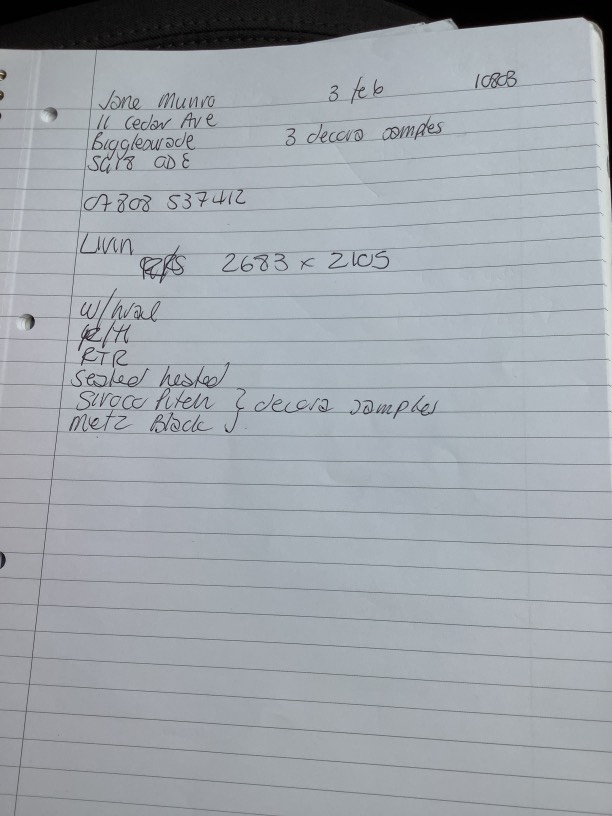 Jane Munro 3 feb 10803
11 Cedar Ave
Biggleswade 3 decora samples
SG18 0DE
07808 537412
Livin
2683 x 2105
w/hval
R/H
RTR
Sealed hested
Sirocco Pitch } decora samples
Metz Black